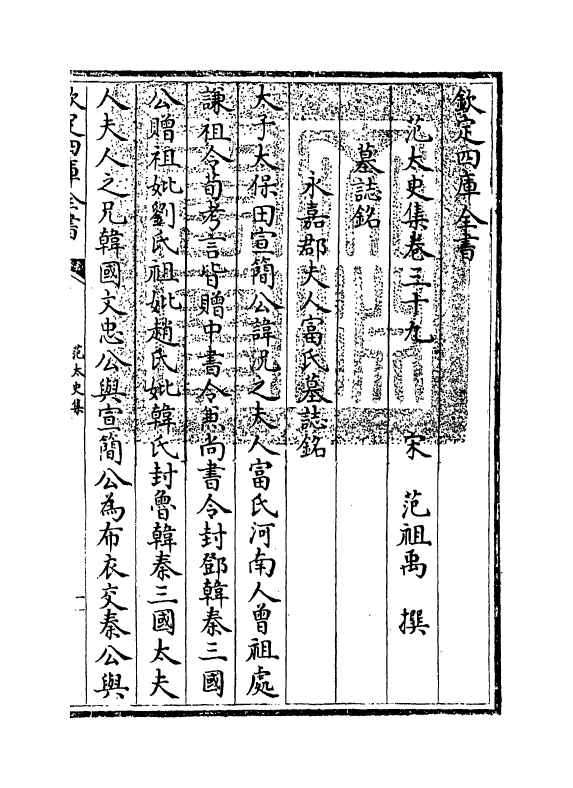 欽定四庫全書
范太史集卷三十九　宋　范祖禹　撰
墓誌銘
永嘉郡夫人富氏墓誌銘
太子太保田宣簡公諱況之夫人富氏河南人曾祖處
謙祖令荀考言皆贈中書令兼尚書令封鄧韓秦三國
公贈祖妣劉氏祖妣趙氏妣韓氏封魯韓秦三國太夫
人夫人之兄韓國文忠公與宣簡公為布衣交秦公與
欽定四庫全書
范太史集
一